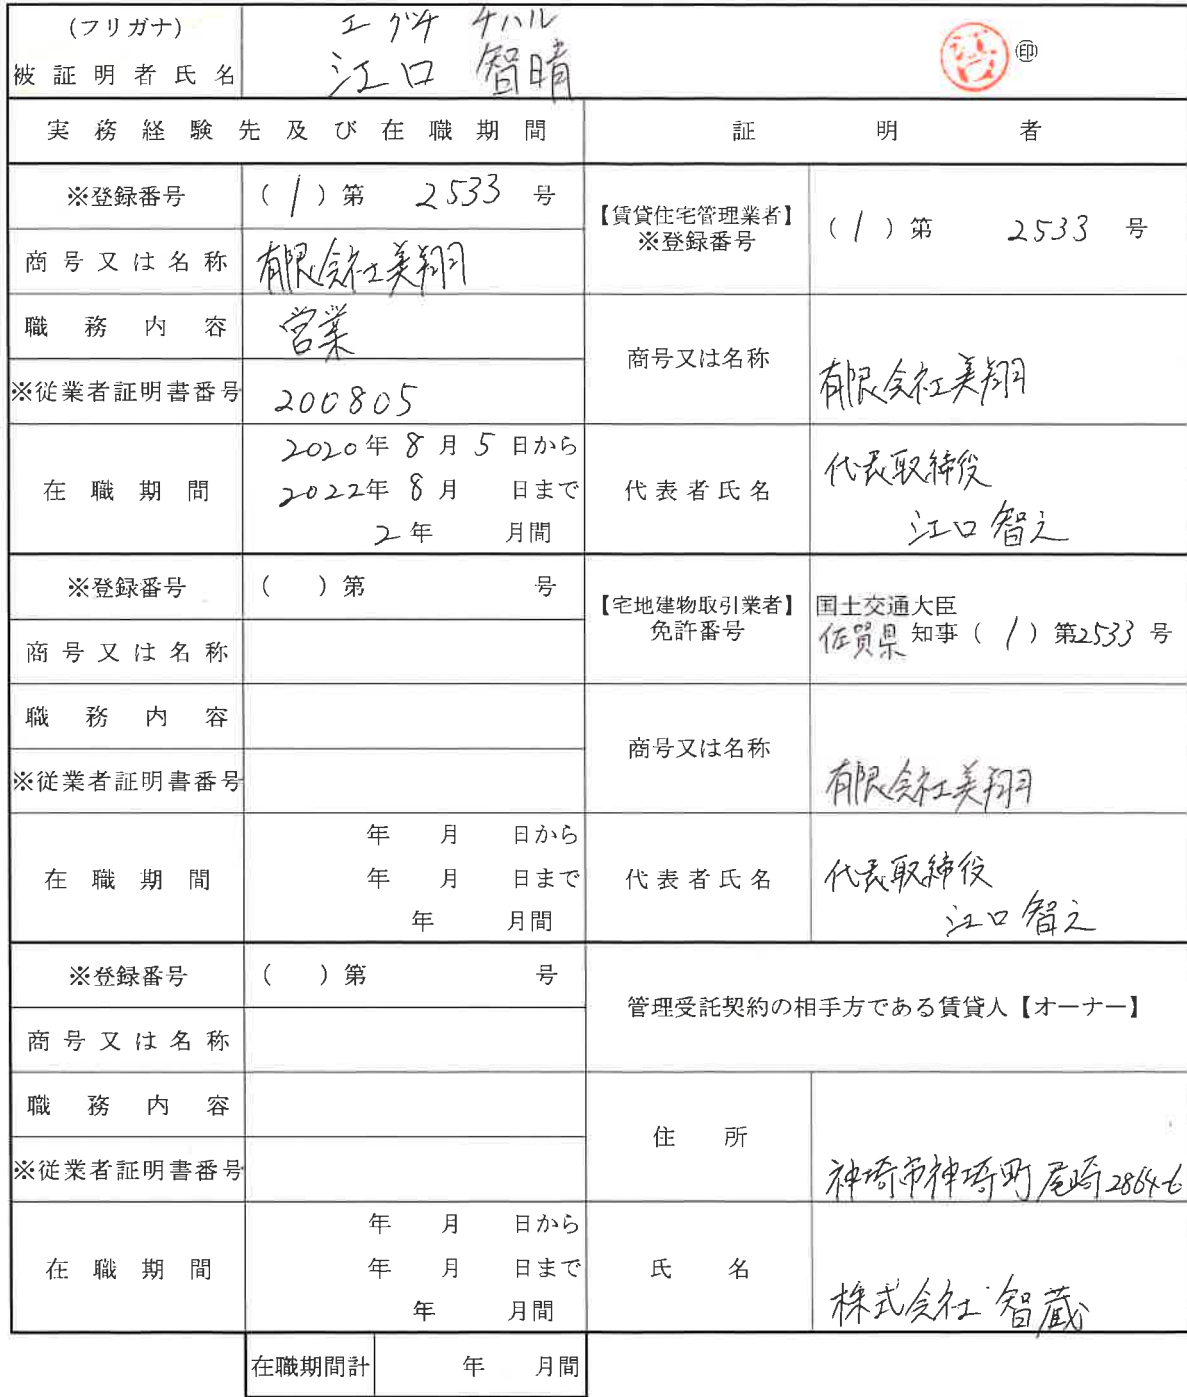 (フリガナ) エグチ チハル
被証明者氏名 江口 智晴 江口 ㊞
実務経験先及び在職期間 証明者
※登録番号 (1)第 2533 号
商号又は名称 有限会社美翔
職務内容 営業
※従業者証明書番号 200805
在職期間
2020年8月5日から
2022年8月 日まで
2年 月間
【賃貸住宅管理業者】
※登録番号 (1)第 2533 号
商号又は名称 有限会社美翔
代表者氏名 代表取締役
江口智之
※登録番号 ( )第 号
商号又は名称
職務内容
※従業者証明書番号
在職期間
年 月 日から
年 月 日まで
年 月間
【宅地建物取引業者】
免許番号
国土交通大臣
佐賀県 知事(1)第2533号
商号又は名称 有限会社美翔
代表者氏名 代表取締役
江口智之
※登録番号 ( )第 号
商号又は名称
職務内容
※従業者証明書番号
在職期間
年 月 日から
年 月 日まで
年 月間
管理受託契約の相手方である賃貸人【オーナー】
住所 神埼市神埼町尾崎2864-6
氏名 株式会社智蔵
在職期間計 年 月間